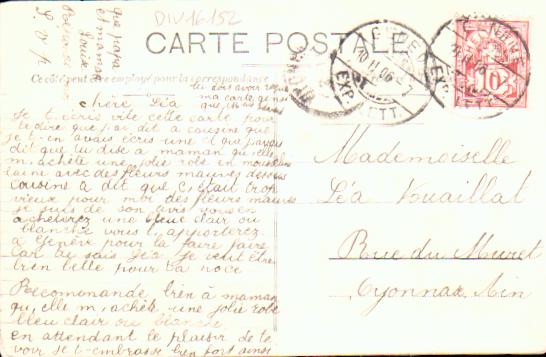 DIV16152
CARTE POSTALE
Ce côté peut être employé pour la correspondance
tu dois avoir reçu
ma carte
Chère Léa
Je t'écris vite cette carte pour
te dire que j'ai dit a cousine que
je t'en avais écris une et que j'avais
dit que tu dise a maman qu'elle
m'achète une jolie robe en mousseline
laine avec des fleurs mauves dessus
cousine a dit que c'était trop
vieux pour moi des fleurs mauves
je suis de son avis vous en
achèterez une bleut clair ou
blanche vous l'apporterez
a Genève pour la faire faire
car tu sais Léa je veut être
bien belle pour la noce
Recommande bien à maman
qu'elle m'achète une jolie robe
bleu clair ou blanche
en attendant le plaisir de te
voir je t'embrasse bien fort ainsi
que papa
et maman
S. V. P.
GENÈVE
10 II 06 - 7
EXP. LETT.
HELVETIA
10
Mademoiselle
Léa Vouaillat
Rue du Muret
Oyonnax Ain